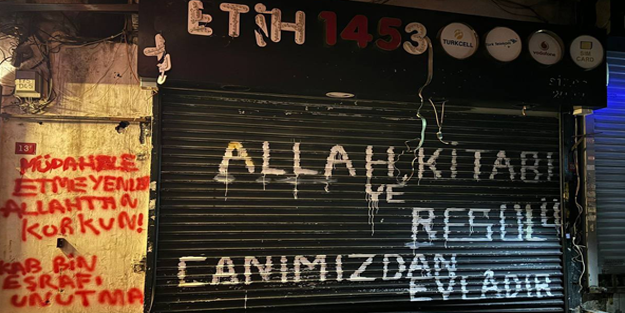 ETİH 1453
TURKCELL
vodafone
SIM
CARD
13
MÜDAHALE
ETMEYENLER
ALLAHTAN
KORKUN!
KAB BİN
EŞRAFI
UNUTMA
ALLAH KİTABI
VE
RESULÜ
CANIMIZDAN
EVLÂDIR